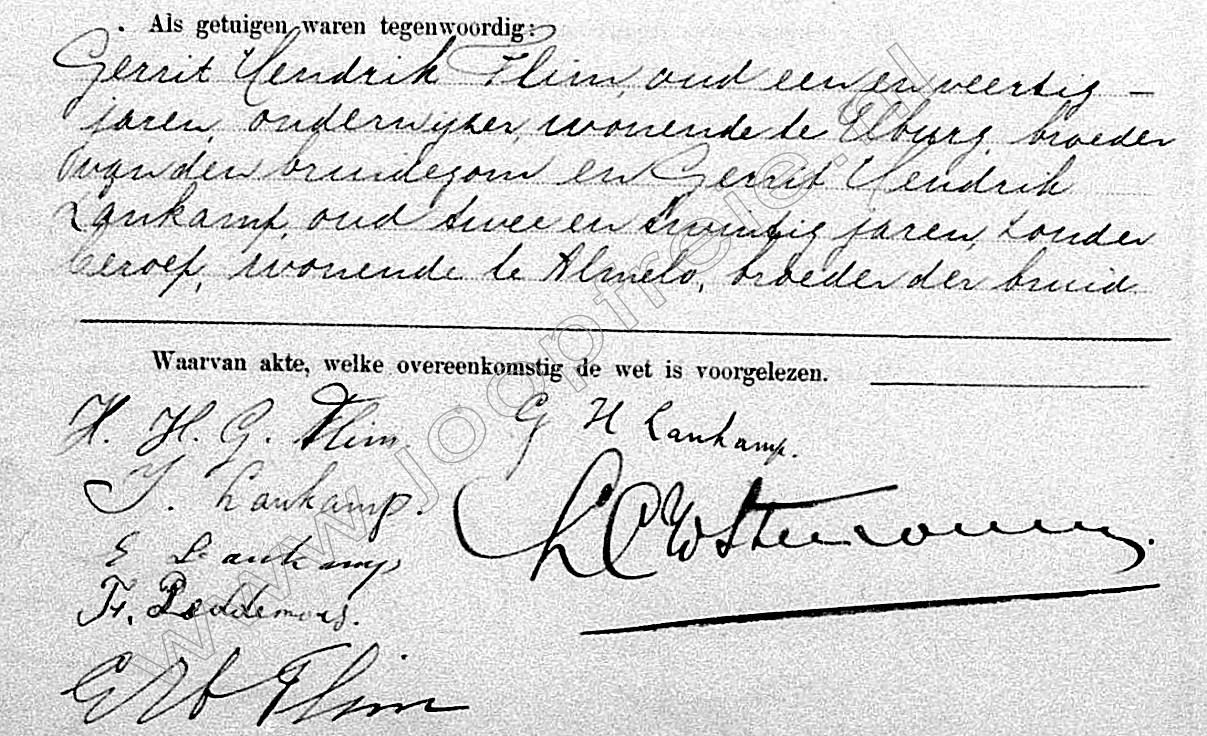 Als getuigen waren tegenwoordig:
Gerrit Hendrik Flim, oud een en veertig –
jaren, onderwyzer, wonende te Elburg, broeder
van den bruidegom en Gerrit Hendrik
Lankamp, oud twee en twintig jaren, zonder
beroep, wonende te Almelo, broeder der bruid
Waarvan akte, welke overeenkomstig de wet is voorgelezen.
H. H. G. Flim.
G H Lankamp.
J. Lankamp.
E Lankamp
Fr. Peddemors.
Flim
www.joopfreie.nl